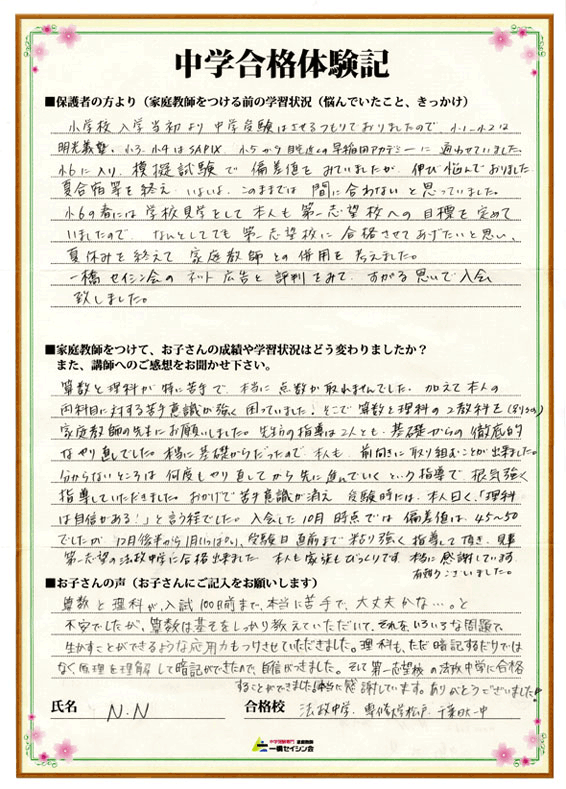 中学合格体験記
■保護者の方より（家庭教師をつける前の学習状況（悩んでいたこと、きっかけ）
小学校入学当初より中学受験はさせるつもりでおりましたので、小1～小2は
明光義塾、小3、小4はSAPIX、小5から自宅近くの早稲田アカデミーに通わせていました。
小6に入り、模擬試験で偏差値をみていましたが、伸び悩んでおりました。
夏合宿等を終え、いよいよ、このままでは間に合わないと思っていました。
小6の春には学校見学をして本人も第一志望校への目標を定めて
いましたので、なんとしてても第一志望校に合格させてあげたいと思い、
夏休みを終えて家庭教師との併用を考えました。
一橋セイシン会のネット広告と評判をみて、すがる思いで入会
致しました。
■家庭教師をつけて、お子さんの成績や学習状況はどう変わりましたか？
また、講師へのご感想をお聞かせ下さい。
算数と理科が特に苦手で、本当に点数が取れませんでした。加えて本人の
両科目に対する苦手意識が強く困っていました。そこで算数と理科の2教科を(別々の)
家庭教師の先生にお願いしました。先生方の指導は2人とも、基礎からの徹底的
なやり直しでした。本当に基礎からだったので本人も、前向きに取り組むことが出来ました。
分からないところは何度もやり直してから先に進んでいくという指導で、根気強く
指導していただきました。おかげで苦手意識が消え、受験時には、本人曰く、「理科
は自信がある！」と言う程でした。入会した10月時点では偏差値は、45～50
でしたが、12月後半から1月いっぱい、受験日直前まで粘り強く指導して頂き、見事
第一志望の法政中学に合格出来ました。本人も家族もびっくりです。本当に感謝しています。
有難うございました。
■お子さんの声（お子さんにご記入をお願いします）
算数と理科が、入試100日前まで、本当に苦手で、大丈夫かな…。と
不安でしたが、算数は基そをしっかり教えていただいて、それを、いろいろな問題で
生かすことができるような応用力もつけさせていただきました。理科も、ただ暗記するだけでは
なく原理を理解して暗記ができたので、自信がつきました。そして第一志望校の法政中学に合格
することができました！本当に感謝しています。ありがとうございました！
氏名 N.N 合格校 法政中学、専修大学松戸、千葉日大一中
中学受験専門 家庭教師
一橋セイシン会